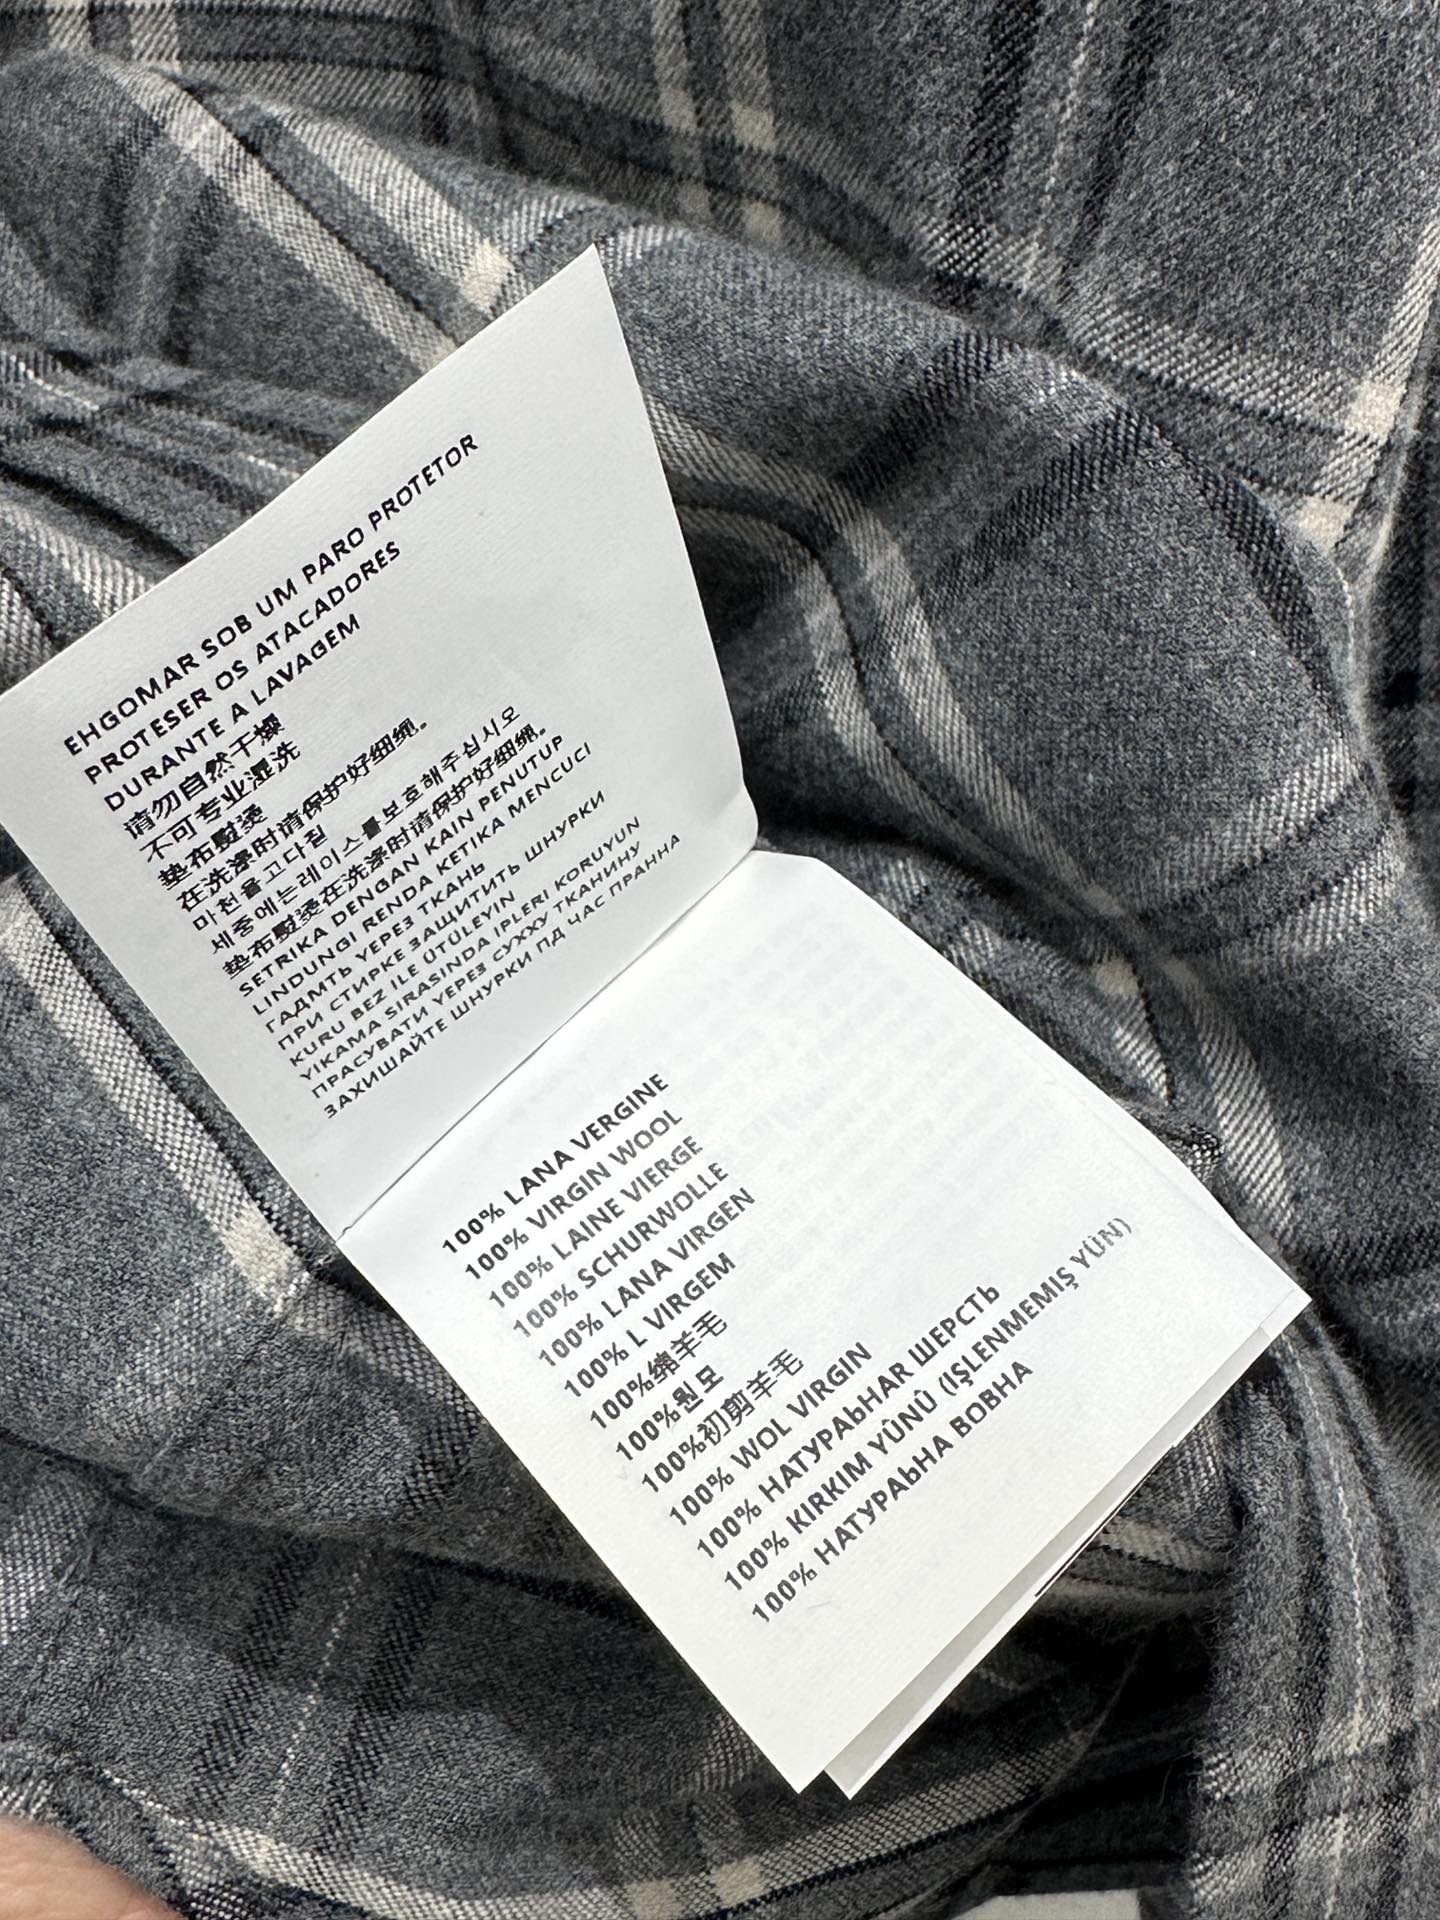 EHGOMAR SOB UM PARO PROTETOR
PROTESER OS ATACADORES
DURANTE A LAVAGEM
请勿自然干燥
不可专业湿洗
垫布熨烫
在洗涤时请保护好细绳。
마천을고다질
세중에는레이스를보호해주십시오
垫布熨烫在洗涤时请保护好细绳。
SETRIKA DENGAN KAIN PENUTUP
LINDUNGI RENDA KETIKA MENCUCI
ГАДМТЬ ҮЕРЕЗ ТКАНЬ
ПРИ СТИРКЕ ЗАЩИТИТЬ ШНУРКИ
KURU BEZ ILE ÜTÜLEYIN
YIKAMA SIRASINDA IPLERI KORUYUN
ПРАСУВАТИ ҮЕРЕЗ СУХХУ ТКАНИНУ
ЗАХИШАЙТЕ ШНУРКИ ПД ЧАС ПРАННА
100% LANA VERGINE
100% VIRGIN WOOL
100% LAINE VIERGE
100% SCHURWOLLE
100% LANA VIRGEN
100% L VIRGEM
100%绵羊毛
100%원모
100%初剪羊毛
100% WOL VIRGIN
100% НАТУРАЬНАR ШЕРСТЬ
100% KIRKIM YÜNÛ (IŞLENMEMIŞ YÜN)
100% НАТУРАЬНА ВОВНА